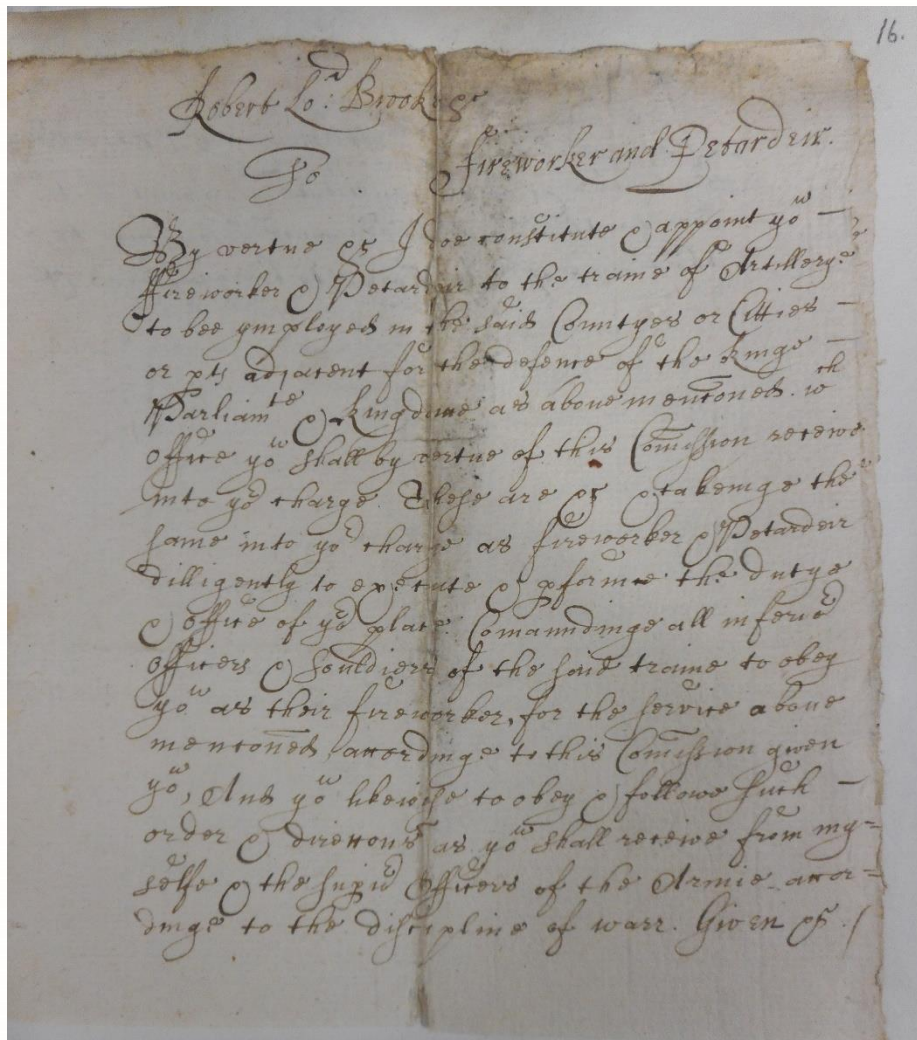 16.
Robert Lo:d Brooke &c
To fireworker and Petardeir.
By vertue &c I doe constitute & appoint yow —
ffireworker & Petardeir to the traine of Artillerye
to bee ymployed in the said Countyes or Citties —
or pts adjacent for the defence of the Kinge —
Parliamte & Kingdome as above mencōned. wch
office yow shall by vertue of this Comission receive
into yor charge These are &c & takeinge the
same into yor charge as fireworker & Petardeir
dilligently to execute & pforme the dutye
& office of yor place Comanndinge all inferior
officers & souldiers of the said traine to obey
yow as their fireworker, for the service above
mencōned, accordinge to this Comission given
yow, And yow likewise to obey & followe such —
order & direccons as yow shall receive from my=
selfe & the supior Officers of the Armie accor=
dinge to the discipline of warr. Given &c. /